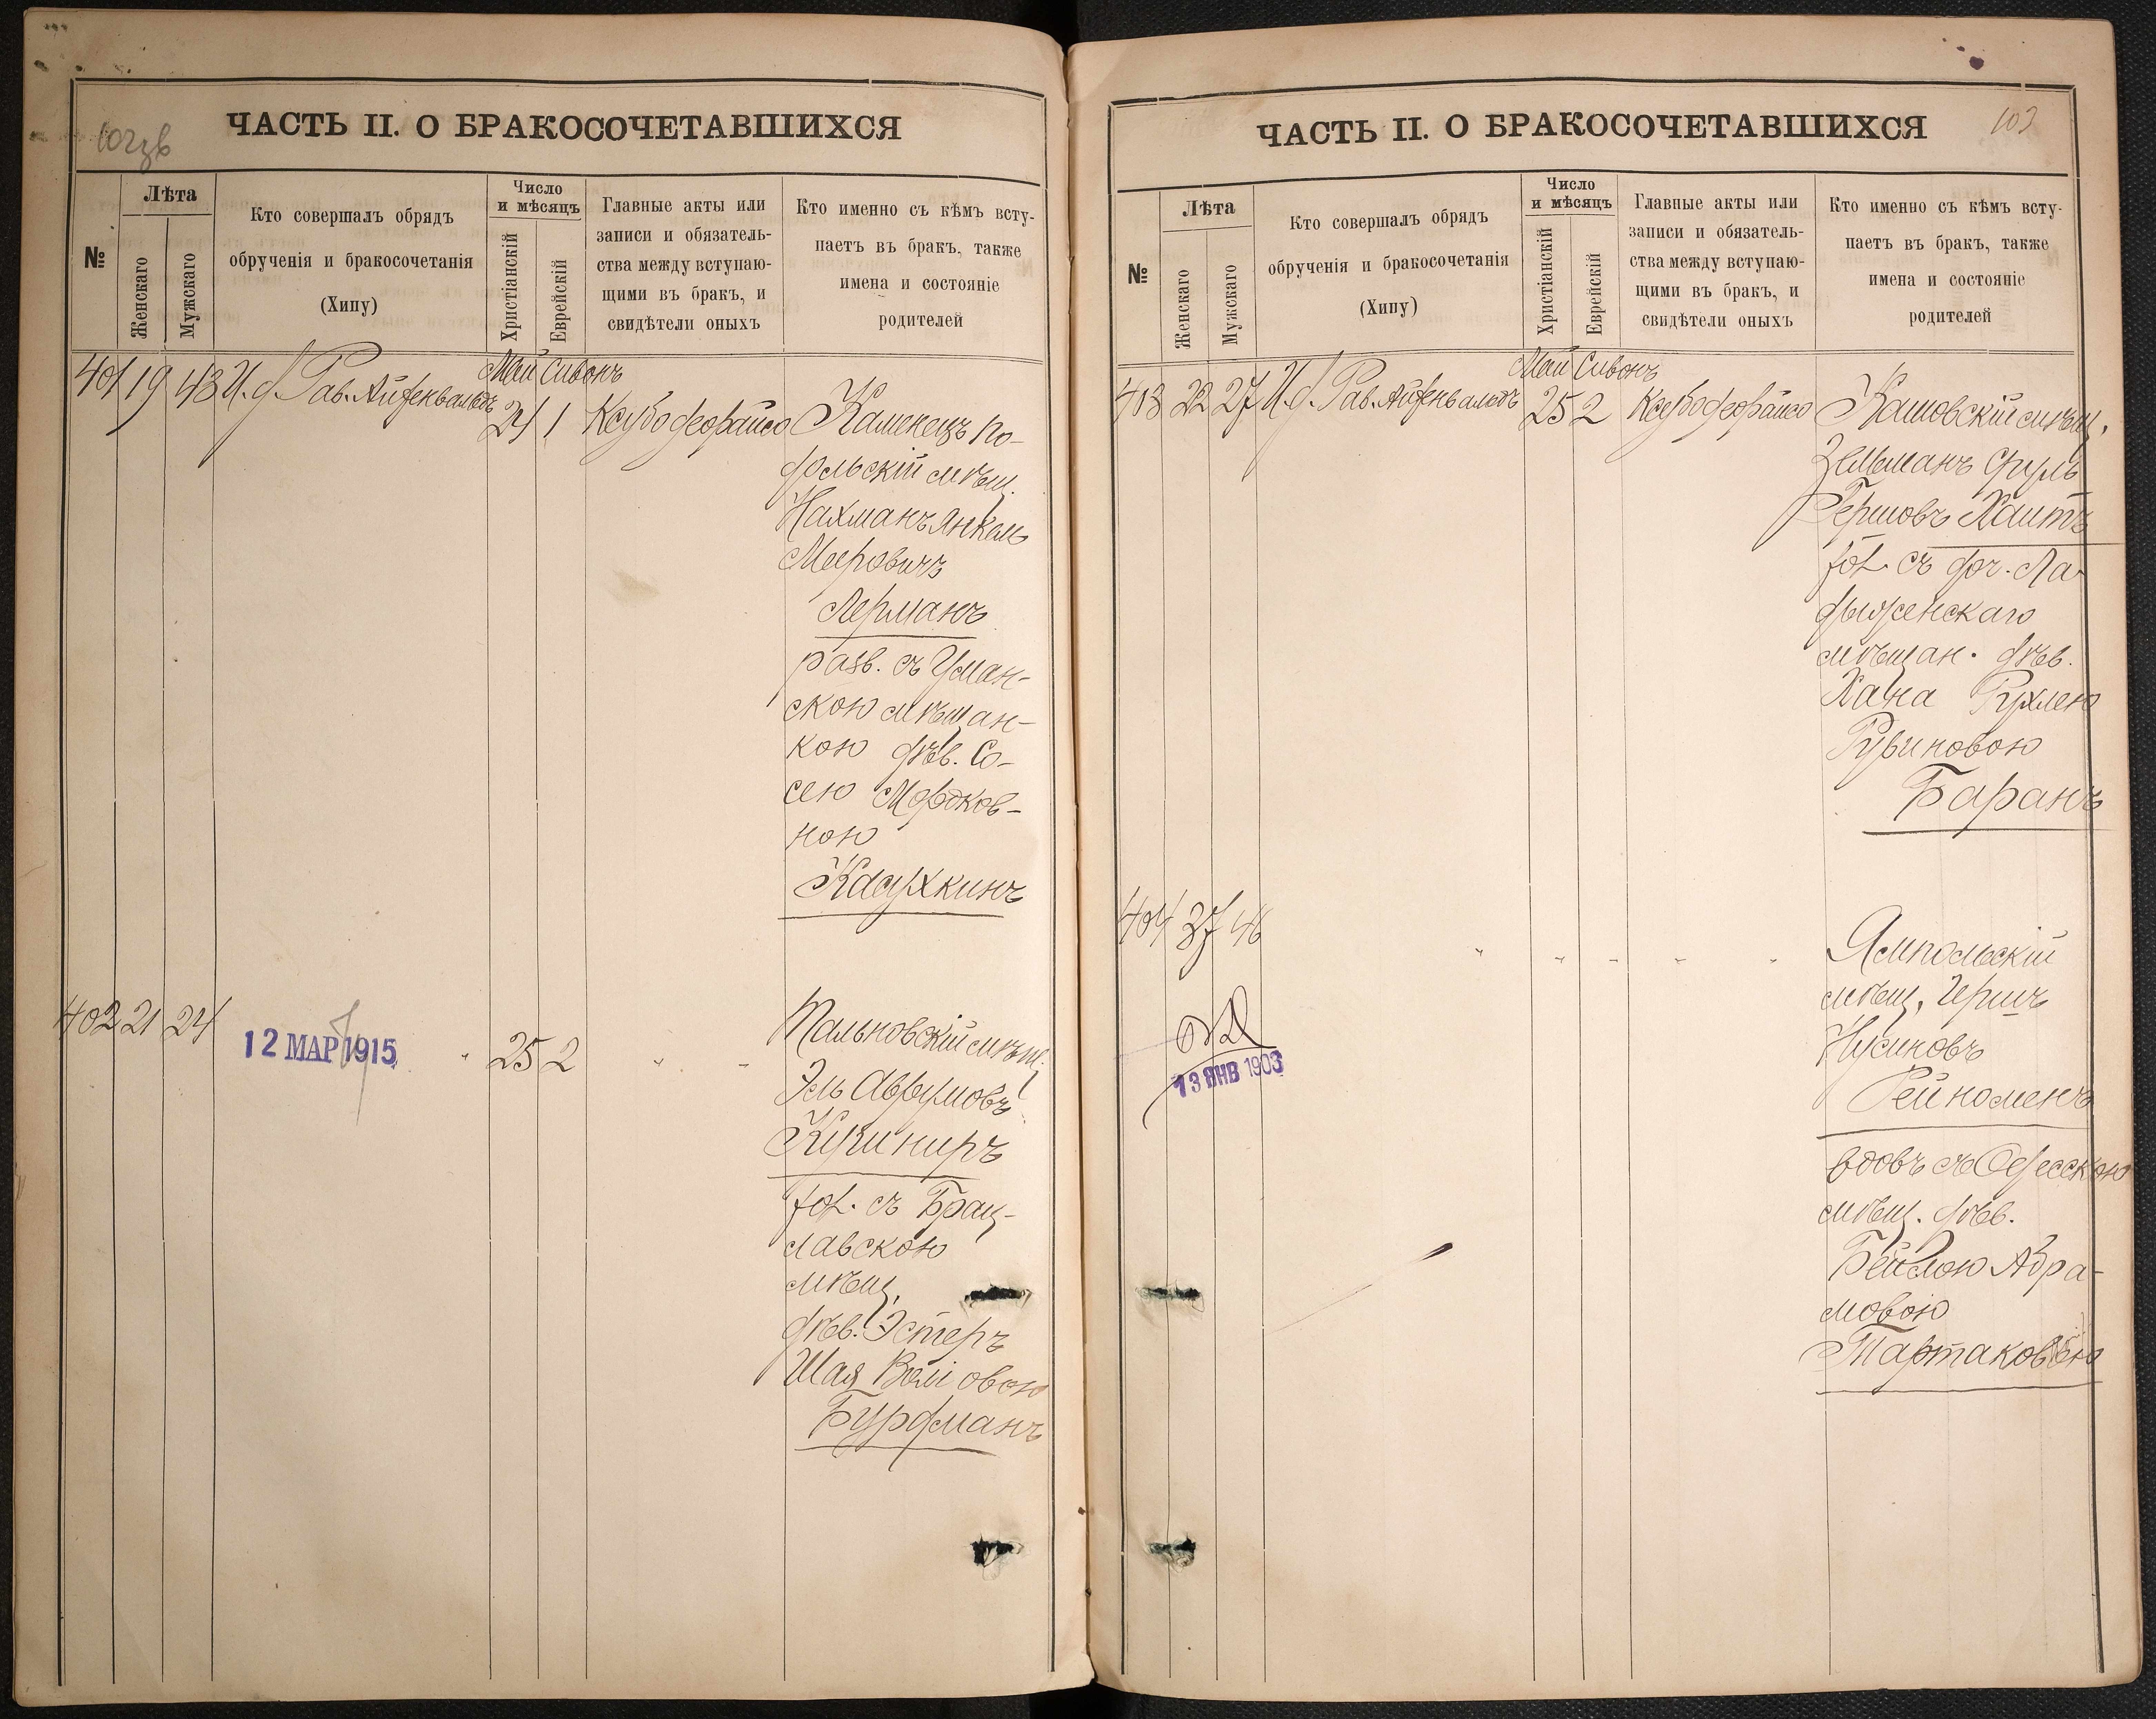 102зв
ЧАСТЬ II. О БРАКОСОЧЕТАВШИХСЯ
№
Лѣта
Женскаго
Мужскаго
Кто совершалъ обрядъ
обрученія и бракосочетанія
(Хипу)
Число
и мѣсяцъ
Христіанскій
Еврейскій
Главные акты или
записи и обязатель-
ства между вступаю-
щими въ бракъ, и
свидѣтели оныхъ
Кто именно съ кѣмъ всту-
паетъ въ бракъ, также
имена и состояніе
родителей
Май Сивонъ
401 19 43 И. д. Рав. Айзенвальдъ 24 1 Ксубо деорайсо Каменецъ По-
дольскій мѣщ.
Нахманъ Янкель
Мееровичъ
Лерманъ
разв. съ Уман-
скою мѣщан-
кою дѣв. Со-
сею Мордков-
ною
402 21 24 25 2 Тальновскій мѣщ.
12 МАР 1915
Эль Аврумовъ
Кушниръ
хол. съ Брац-
лавскою
мѣщ.
дѣв. Эстеръ
Шая Вольовою
Бурдманъ
103
ЧАСТЬ II. О БРАКОСОЧЕТАВШИХСЯ
№
Лѣта
Женскаго
Мужскаго
Кто совершалъ обрядъ
обрученія и бракосочетанія
(Хипу)
Число
и мѣсяцъ
Христіанскій
Еврейскій
Главные акты или
записи и обязатель-
ства между вступаю-
щими въ бракъ, и
свидѣтели оныхъ
Кто именно съ кѣмъ всту-
паетъ въ бракъ, также
имена и состояніе
родителей
Май Сивонъ
403 22 27 И. д. Рав. Айзенвальдъ 25 2 Ксубо деорайсо Кашовскій мѣщ.
Зельманъ Сруль
Гершовъ Хаитъ
хол. съ доч. Ла-
дыженскаго
мѣщан. дѣв.
Хана Рухлею
Рувиновою
Баранъ
404 37 46 Ямпольскій
мѣщ. Гершъ
Нусиновъ
13 ЯНВ 1903
вдовъ съ Одесскою
мѣщ. дѣв.
Бейлою Абра-
мовою